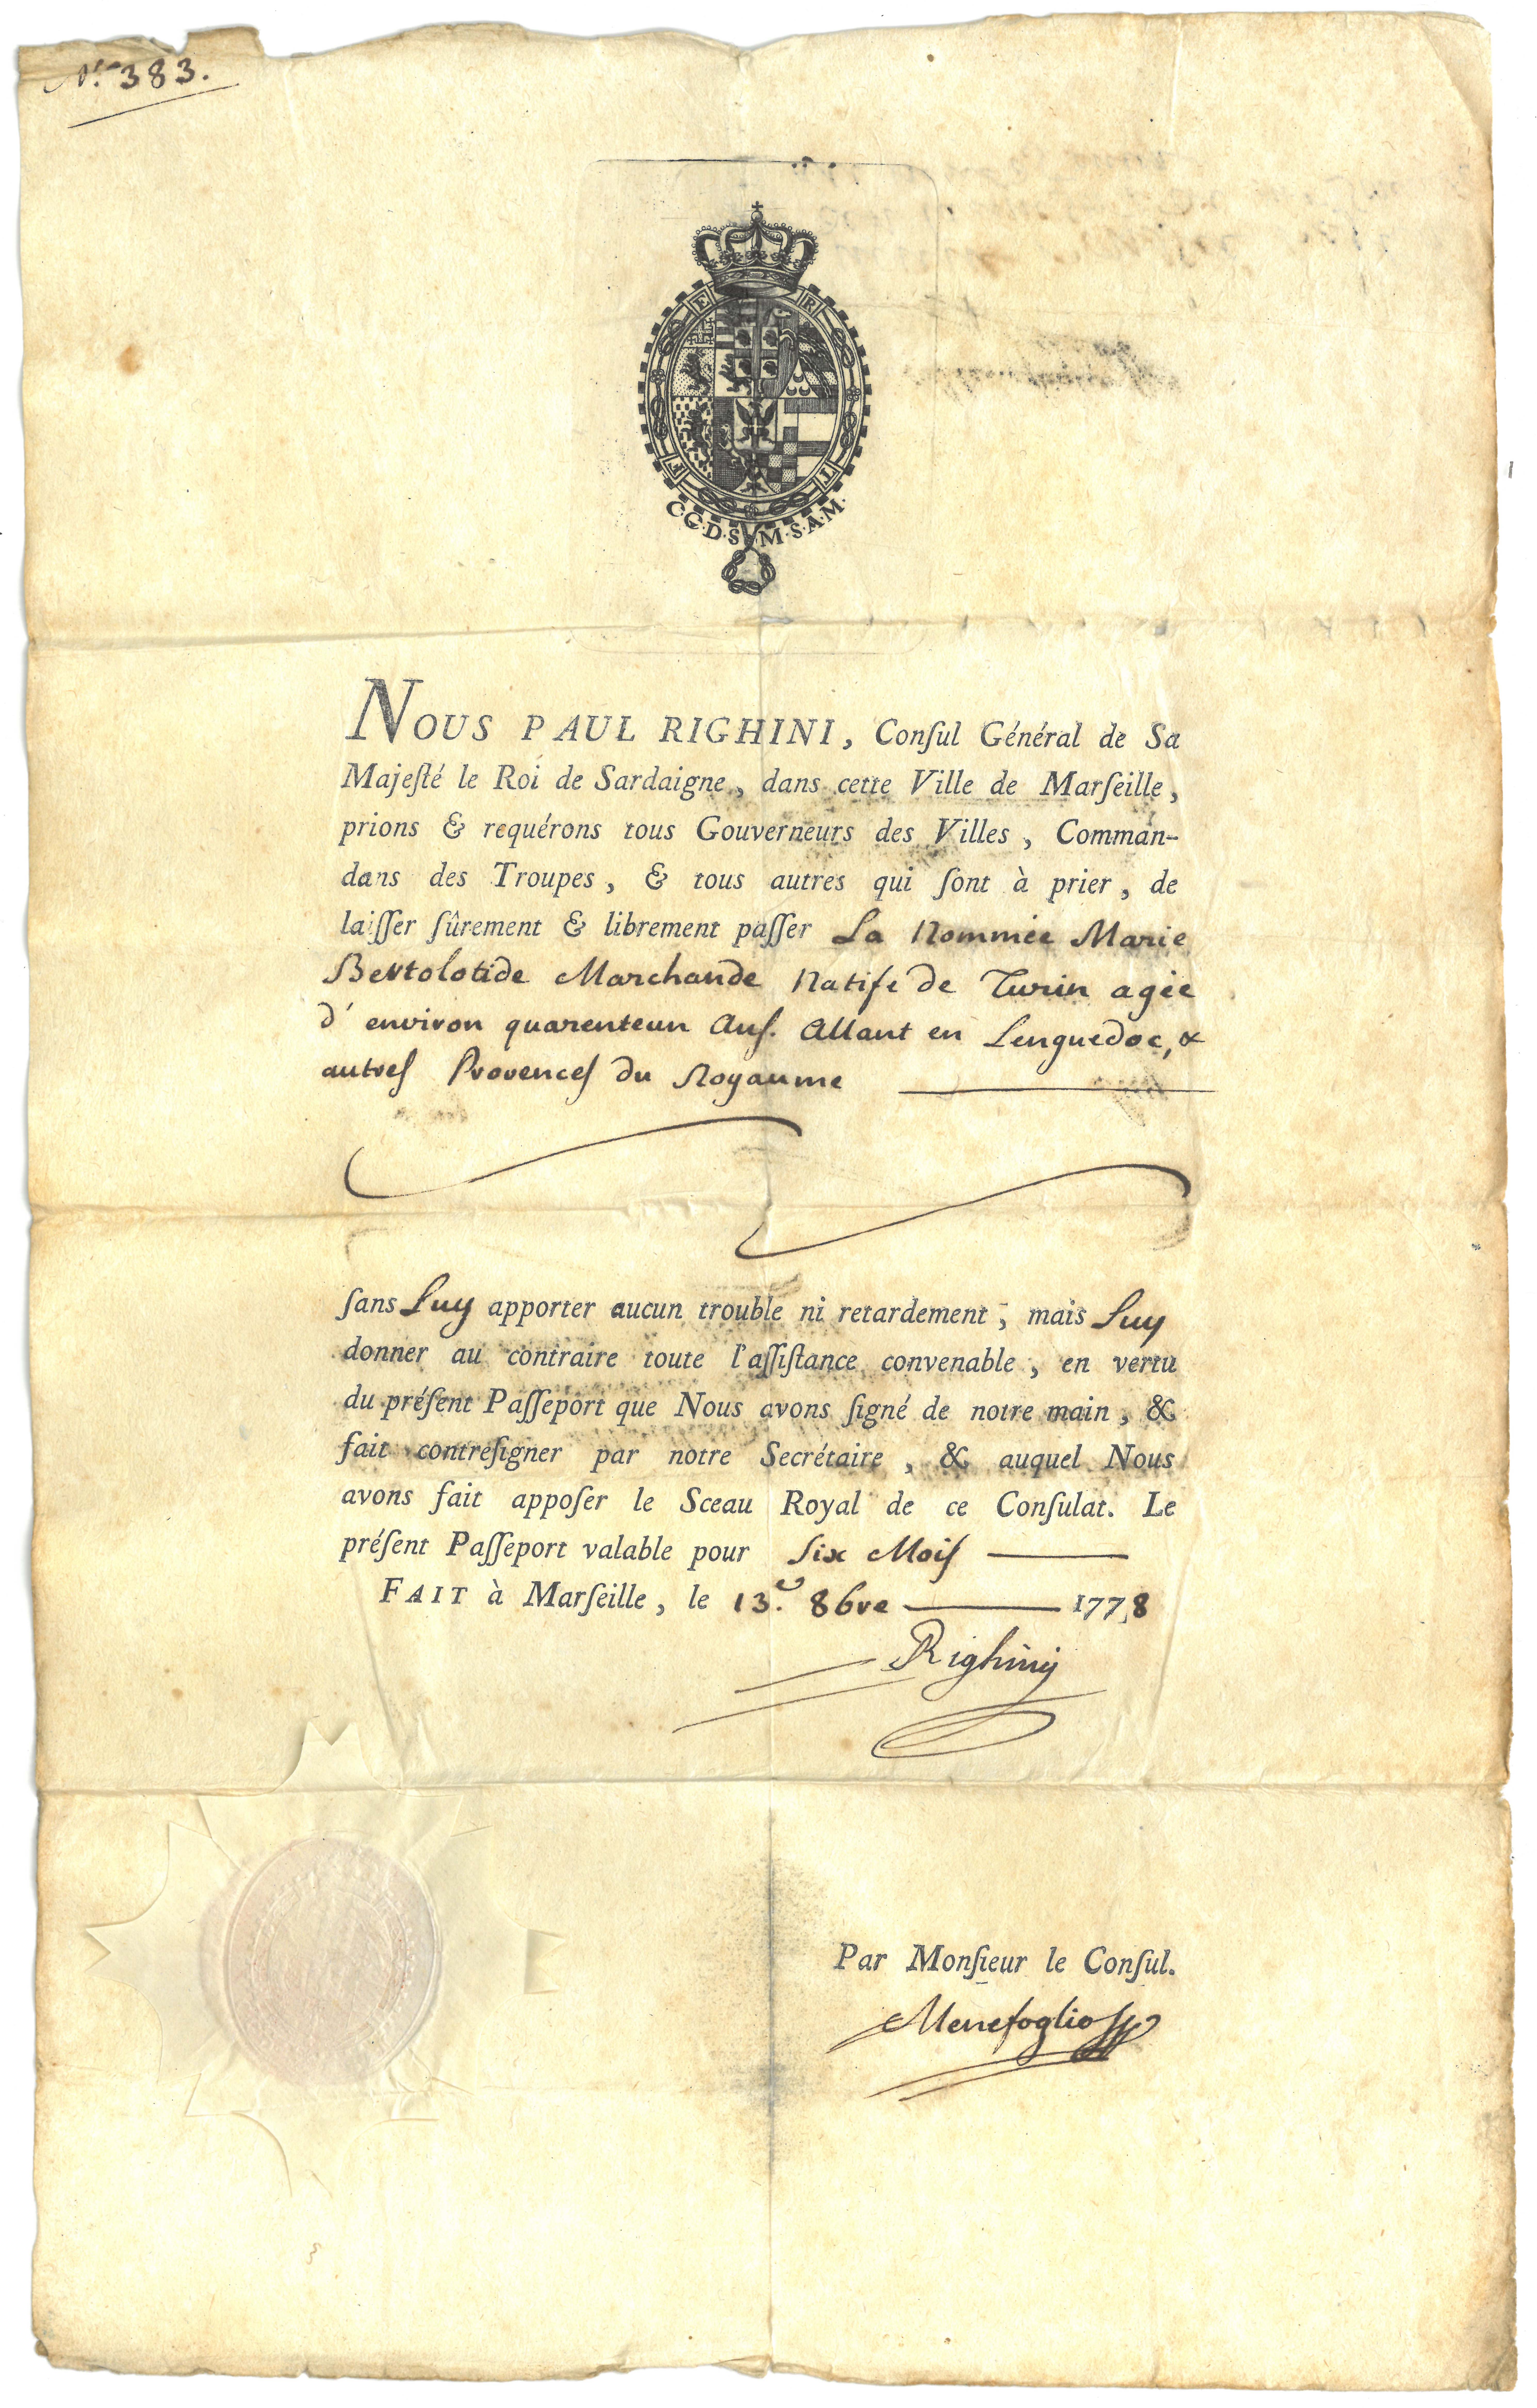 N.º 383.
F E R T
C.G.D.S.M.S.A.M.
NOUS PAUL RIGHINI, Conſul Général de Sa
Majeſté le Roi de Sardaigne, dans cette Ville de Marſeille,
prions & requérons tous Gouverneurs des Villes, Comman-
dans des Troupes, & tous autres qui ſont à prier, de
laiſſer ſûrement & librement paſſer La Nommée Marie
Bertolotide Marchande Natife de Turin agée
d'environ quarenteun Anſ. Allant en Lenguedoc, &
autreſ Provenceſ du Royaume
ſans Luy apporter aucun trouble ni retardement; mais Luy
donner au contraire toute l'aſſiſtance convenable, en vertu
du préſent Paſſeport que Nous avons ſigné de notre main, &
fait contreſigner par notre Secrétaire, & auquel Nous
avons fait appoſer le Sceau Royal de ce Conſulat. Le
préſent Paſſeport valable pour Six Moiſ
FAIT à Marſeille, le 13.e 8bre 1778
Righinij
Par Monſieur le Conſul.
Menefoglio